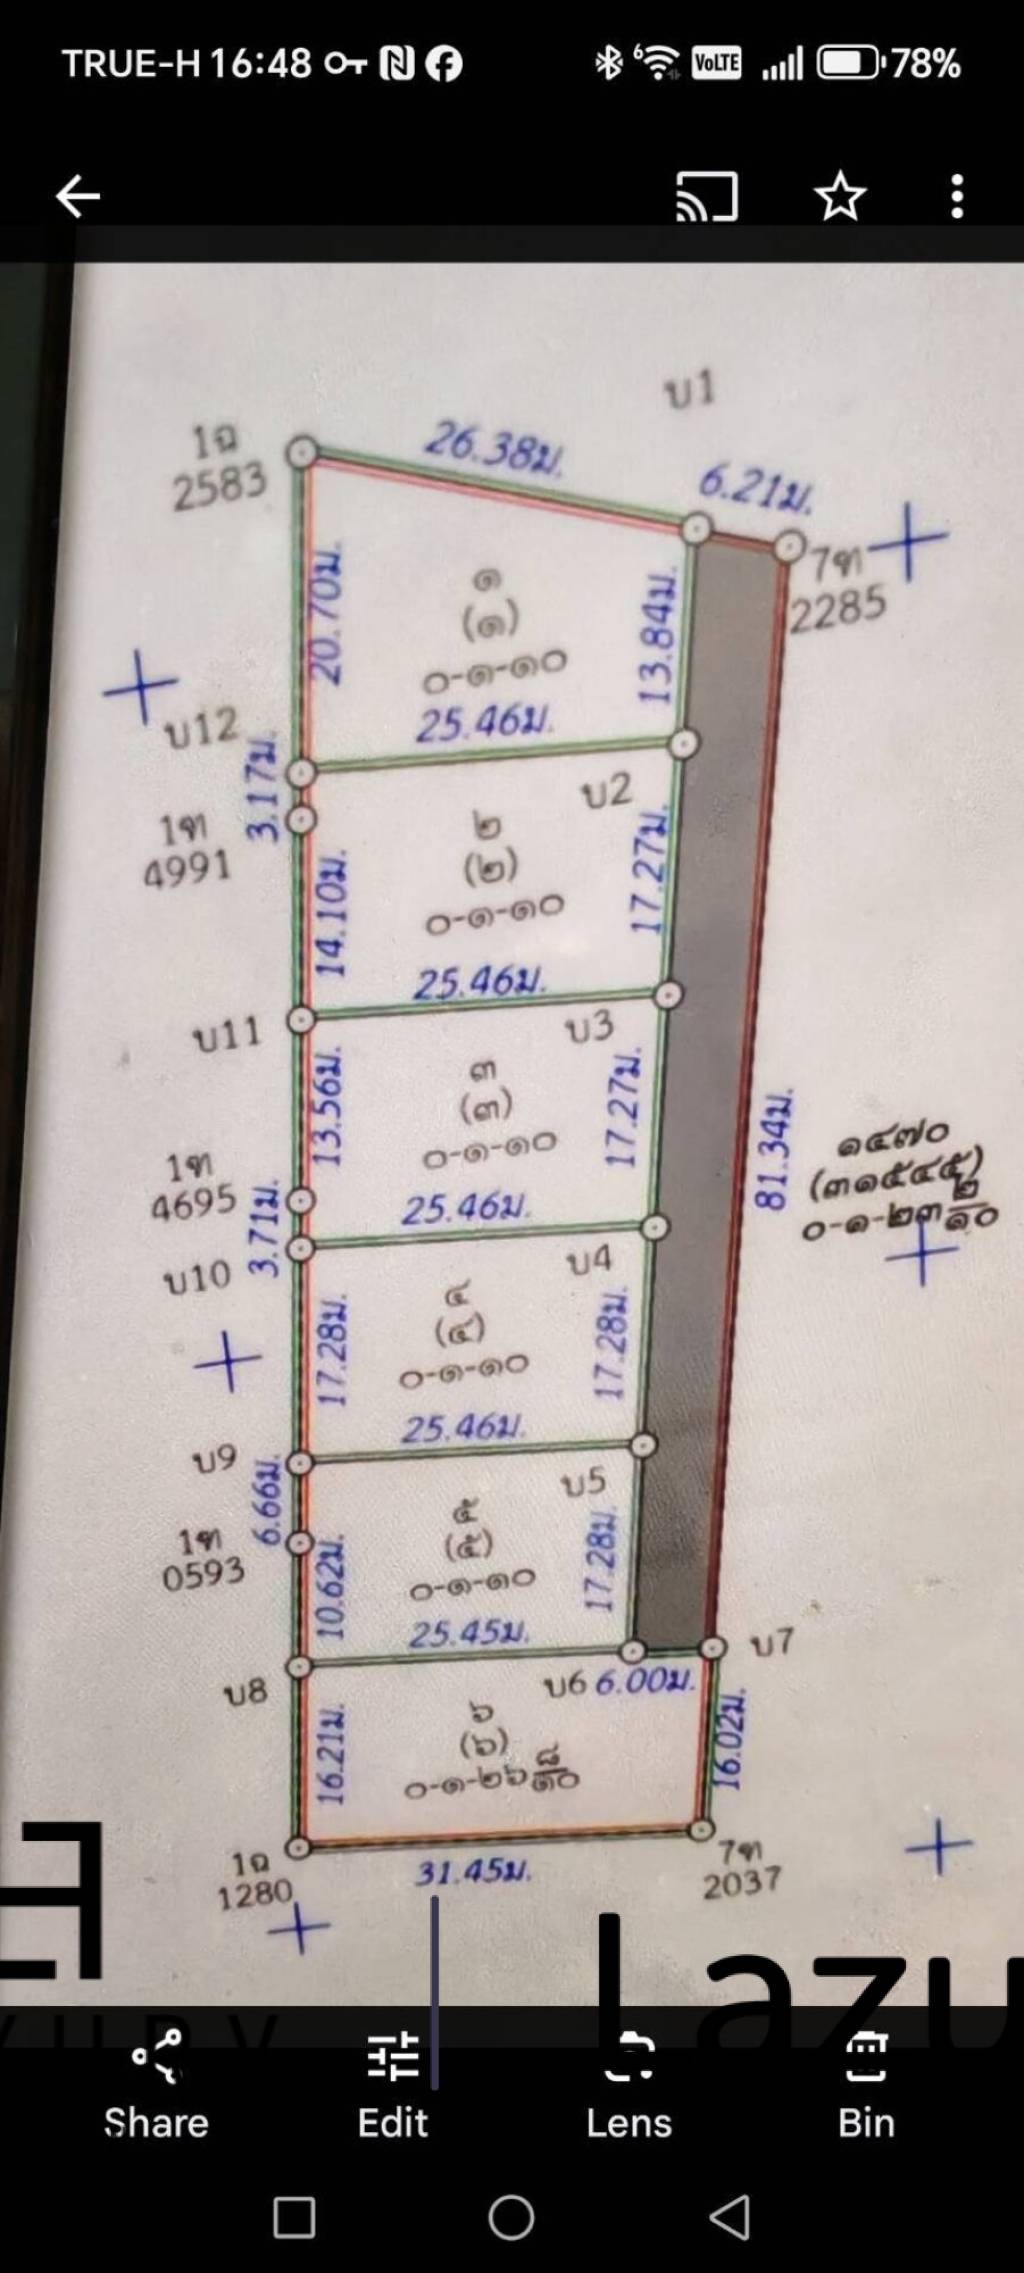 TRUE-H 16:48
VoLTE
78%
บ1
1ฉ
2583
26.38ม.
6.21ม.
7ท
2285
20.70ม.
๑
(๑)
๐-๑-๑๐
13.84ม.
บ12
25.46ม.
3.17ม.
บ2
1ท
4991
๒
(๒)
๐-๑-๑๐
14.10ม.
17.27ม.
25.46ม.
บ11
บ3
13.56ม.
๓
(๓)
๐-๑-๑๐
17.27ม.
81.34ม.
๑๔๗๐
(๓๑๕๔๕)
๐-๑-๒๓ ๒/๑๐
1ท
4695
3.71ม.
25.46ม.
บ10
บ4
17.28ม.
๔
(๔)
๐-๑-๑๐
17.28ม.
25.46ม.
บ9
บ5
6.66ม.
1ท
0593
๕
(๕)
๐-๑-๑๐
10.62ม.
17.28ม.
25.45ม.
บ7
บ8
บ6 6.00ม.
16.21ม.
๖
(๖)
๐-๑-๒๖ ๘/๑๐
16.02ม.
1ฉ
1280
31.45ม.
7ท
2037
Lazu
Share
Edit
Lens
Bin